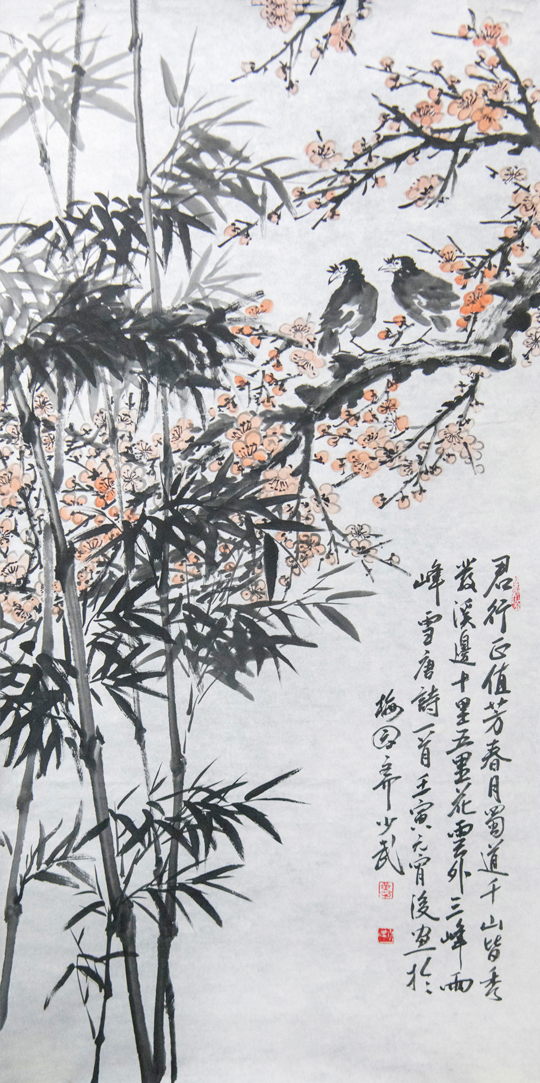 君行正值芳春月蜀道千山皆秀
發溪邊十里五里花雲外三峰兩
峰雪唐詩一首壬寅元宵後画於
梅园少武